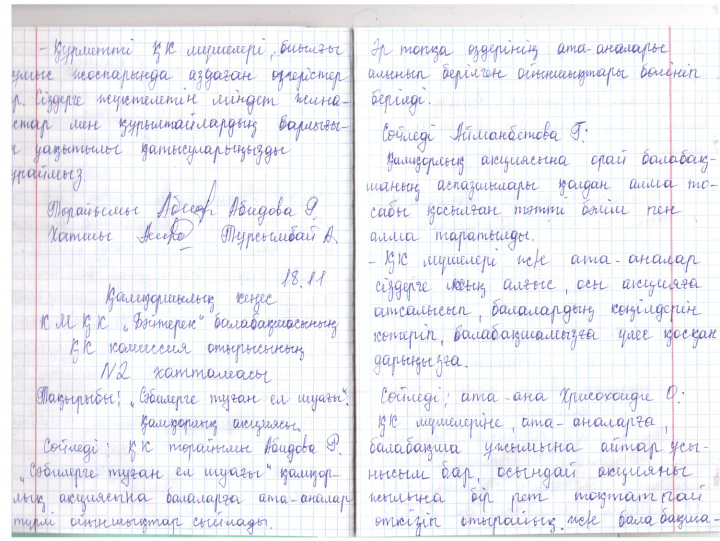 - Құрметті ҚК мүшелері, биылғы
жұмыс жоспарында аздаған өзгерістер
р. Сіздерге жүктелетін міндет жина-
стар мен құрылтайлардың барлығы-
уақытылы қатысуларыңызды
ураймыз.
Төрайымы Абидова Р.
Хатшы Тұрсымбай А.
18.11
Қамқоршылық кеңес
КМҚК „Бәйтерек" балабақшасының
ҚК комиссия отырысының
№2 хаттамасы
Тақырыбы: „Сәбилерге туған ел шуағы".
Қамқорлық акциясы.
Сөйледі: ҚК төрайымы Абидова Р.
„Сәбилерге туған ел шуағы" қамқор-
лық акциясына балаларға ата-аналар
түрлі ойыншықтар сыйлады.
Әр топқа өздерінің ата-аналары
алынып берілген ойыншықтары бөлініп
берілді.
Сөйледі Айманбетова Г:
Қамқорлық акциясына орай балабақ-
шаның аспазшылары қағдан алма то-
сабы қосылған тәтті бөлім пен
алма таратылды.
- ҚК мүшелері және ата-аналар
сіздерге мың алғыс, осы акцияға
атсалысып, балалардың көңілдерін
көтеріп, балабақшамызға үлес қосқан
дарыңызға.
Сөйледі: ата-ана Хрисохоиди О:
ҚК мүшелеріне, ата-аналарға,
балабақша ұжымына айтар ұсы-
нысым бар, осындай акцияны
жылына бір рет тоқтатпай
өткізіп отырайық және балабақша-